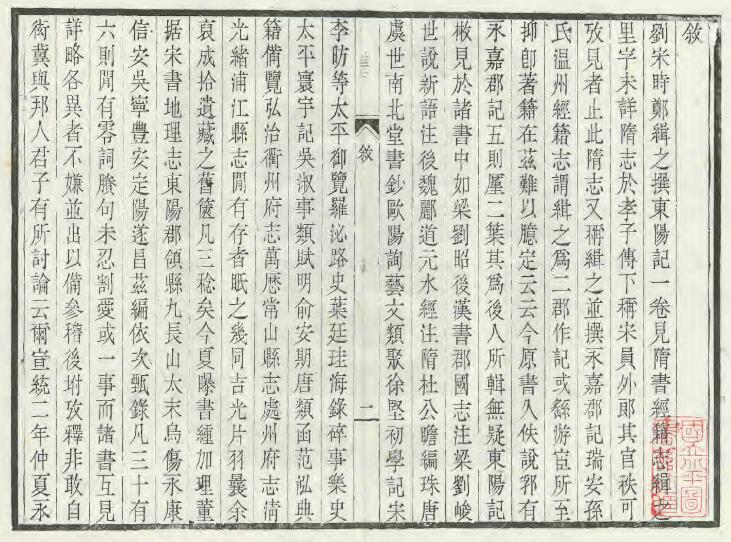 敘
劉宋時鄭緝之撰東陽記一卷見隋書經籍志緝之
里字未詳隋志於孝子傳下稱宋員外郎其官秩可
攷見者止此隋志又稱緝之並撰永嘉郡記瑞安孫
氏温州經籍志謂緝之爲二郡作記或繇游宦所至
抑卽著籍在茲難以臆定云云今原書久佚說郛有
永嘉郡記五則厪二葉其爲後人所輯無疑東陽記
散見於諸書中如梁劉昭後漢書郡國志注梁劉峻
世說新語注後魏酈道元水經注隋杜公瞻編珠唐
虞世南北堂書鈔歐陽詢藝文類聚徐堅初學記宋
敘
二
李昉等太平御覽羅泌路史葉廷珪海錄碎事樂史
太平寰宇記吳淑事類賦明俞安期唐類函范泓典
籍備覽弘治衢州府志萬厯常山縣志處州府志淸
光緒浦江縣志閒有存者眂之幾同吉光片羽曩余
裒成拾遺藏之舊篋凡三稔矣今夏曝書緟加理董
据宋書地理志東陽郡領縣九長山太末烏傷永康
信安吳寧豐安定陽遂昌茲編依次甄錄凡三十有
六則閒有零詞賸句未忍割愛或一事而諸書互見
詳略各異者不嫌並出以備參稽後坿攷釋非敢自
衒冀與邦人君子有所討論云爾宣統二年仲夏永